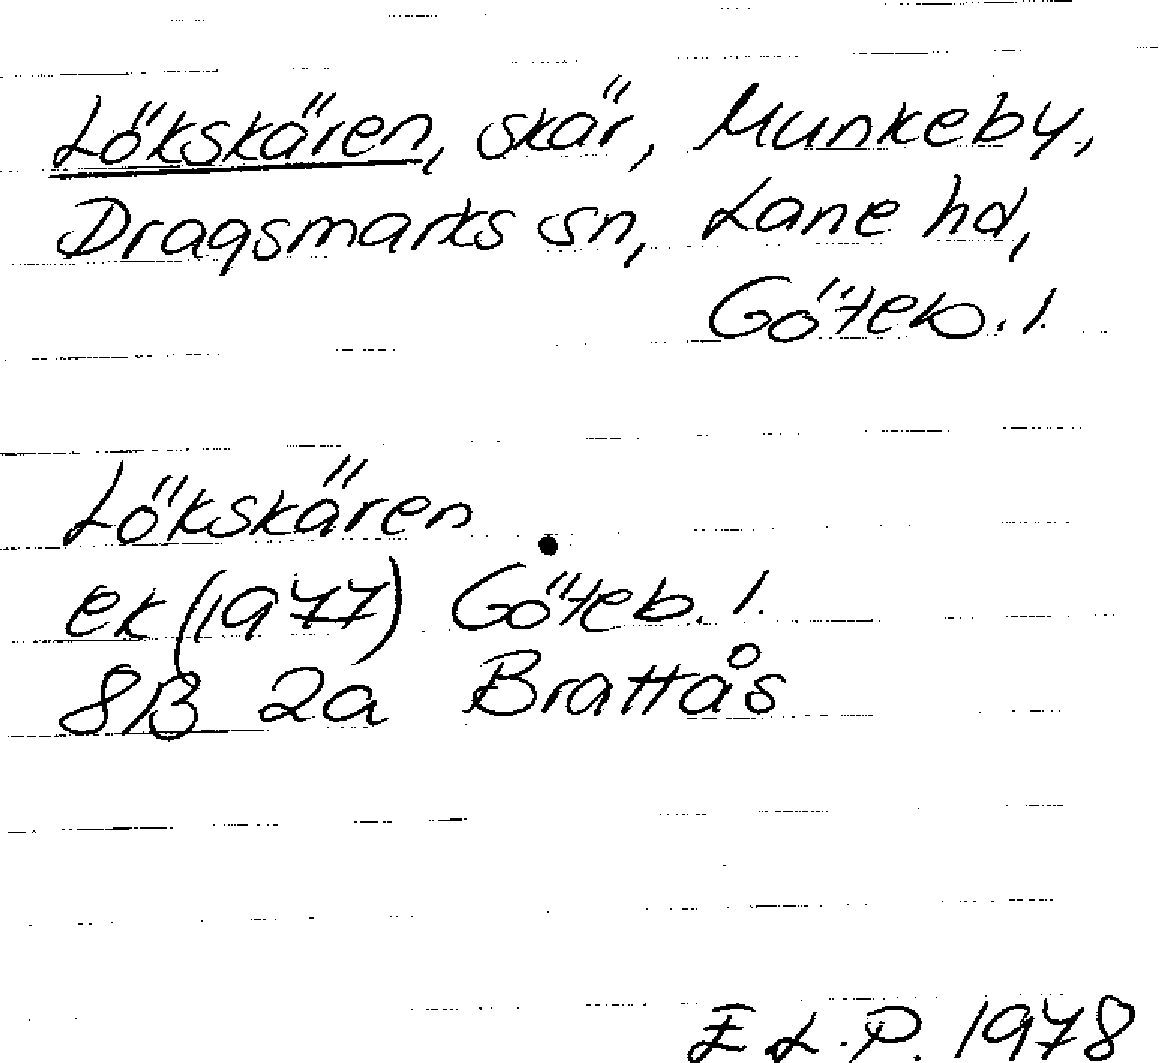 Lökskären, skär, Munkeby,
Dragsmarks sn, Lane hd,
Göteb. l.
Lökskären
ek (1977) Göteb. l.
8B 2a Brattås
E.L.P. 1978